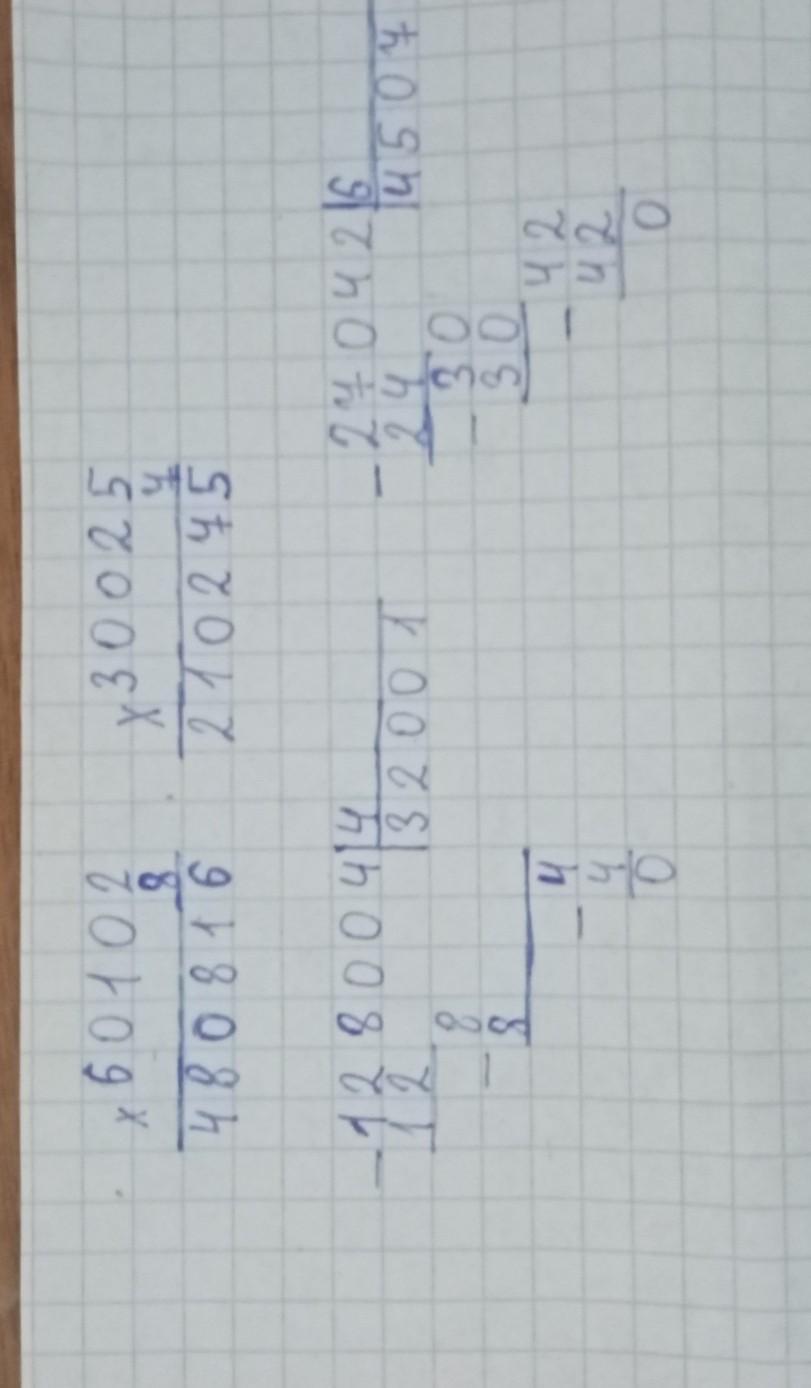 × 60102
8
480816
× 30025
7
210275
− 128004 | 4
12 | 32001
− 8
8
− 4
4
0
− 27042 | 6
24 | 4507
− 30
30
− 42
42
0